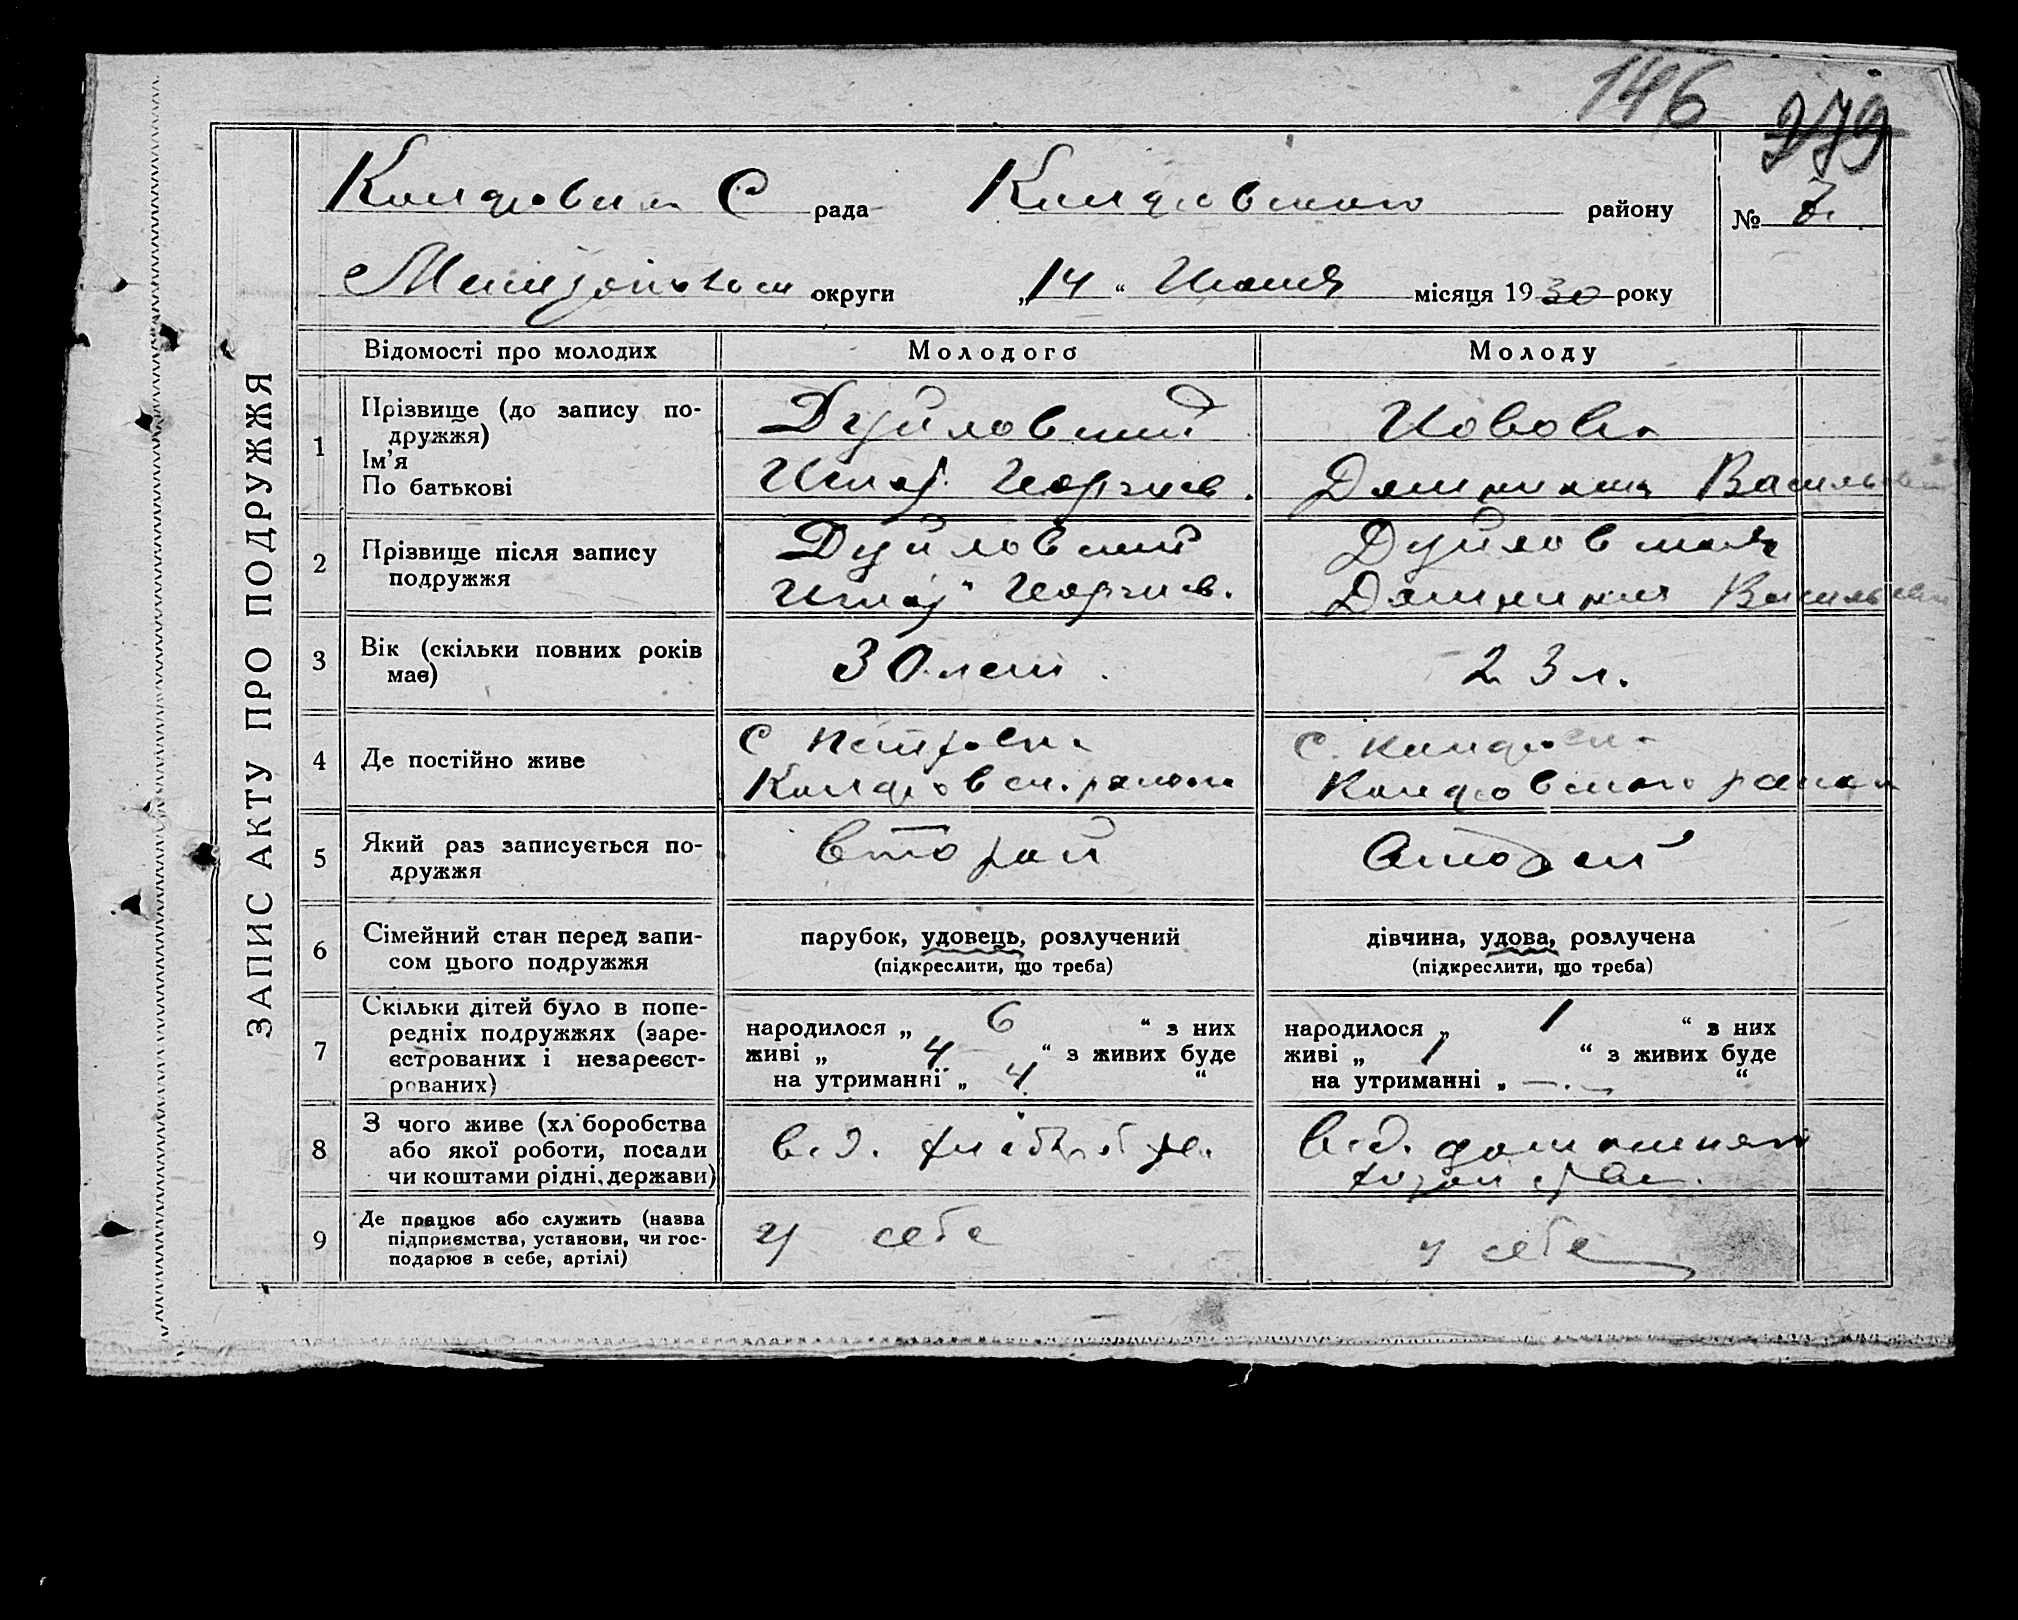 146
279
С рада района району № 7.
округи „14“ Июня місяця 1930 року
ЗАПИС АКТУ ПРО ПОДРУЖЖЯ
Відомості про молодих Молодого Молоду
1 Прізвище (до запису по-
дружжя)
Ім’я
По батькові
Дуйловский
Георгиев.
Йовова
Васильевн
2 Прізвище після запису
подружжя
Дуйловский
Георгиев.
Дуйловская
Васильевн
3 Вік (скільки повних років
має)
30 лет.
23 л.
4 Де постійно живе
с Петровка
района
с.
района
5 Який раз записується по-
дружжя
второй
второй
6 Сімейний стан перед запи-
сом цього подружжя
парубок, удовець, розлучений
(підкреслити, що треба)
дівчина, удова, розлучена
(підкреслити, що треба)
7 Скільки дітей було в попе-
редніх подружжях (заре-
єстрованих і незареєст-
рованих)
народилося „ 6 “ з них
живі „ 4 “ з живих буде
на утриманні „ 4 “
народилося „ 1 “ з них
живі „ 1 “ з живих буде
на утриманні „ — “
8 З чого живе (хліборобства
або якої роботи, посади
чи коштами рідні, держави)
від. хліборобс.
від. домашнян
хозяйства.
9 Де працює або служить (назва
підприємства, установи, чи гос-
подарює в себе, артілі)
у себе
у себе